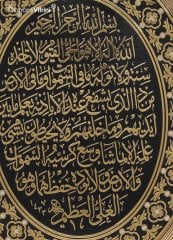 بسم الله الرحمن الرحيم
الله لا إله إلا هو الحي القيوم لا تأخذه
سنة ولا نوم له ما في السموات وما في الأرض
من ذا الذي يشفع عنده إلا بإذنه يعلم ما بين
أيديهم وما خلفهم ولا يحيطون بشيء
من علمه إلا بما شاء وسع كرسيه السموات
والأرض ولا يؤده حفظهما وهو
العلي العظيم